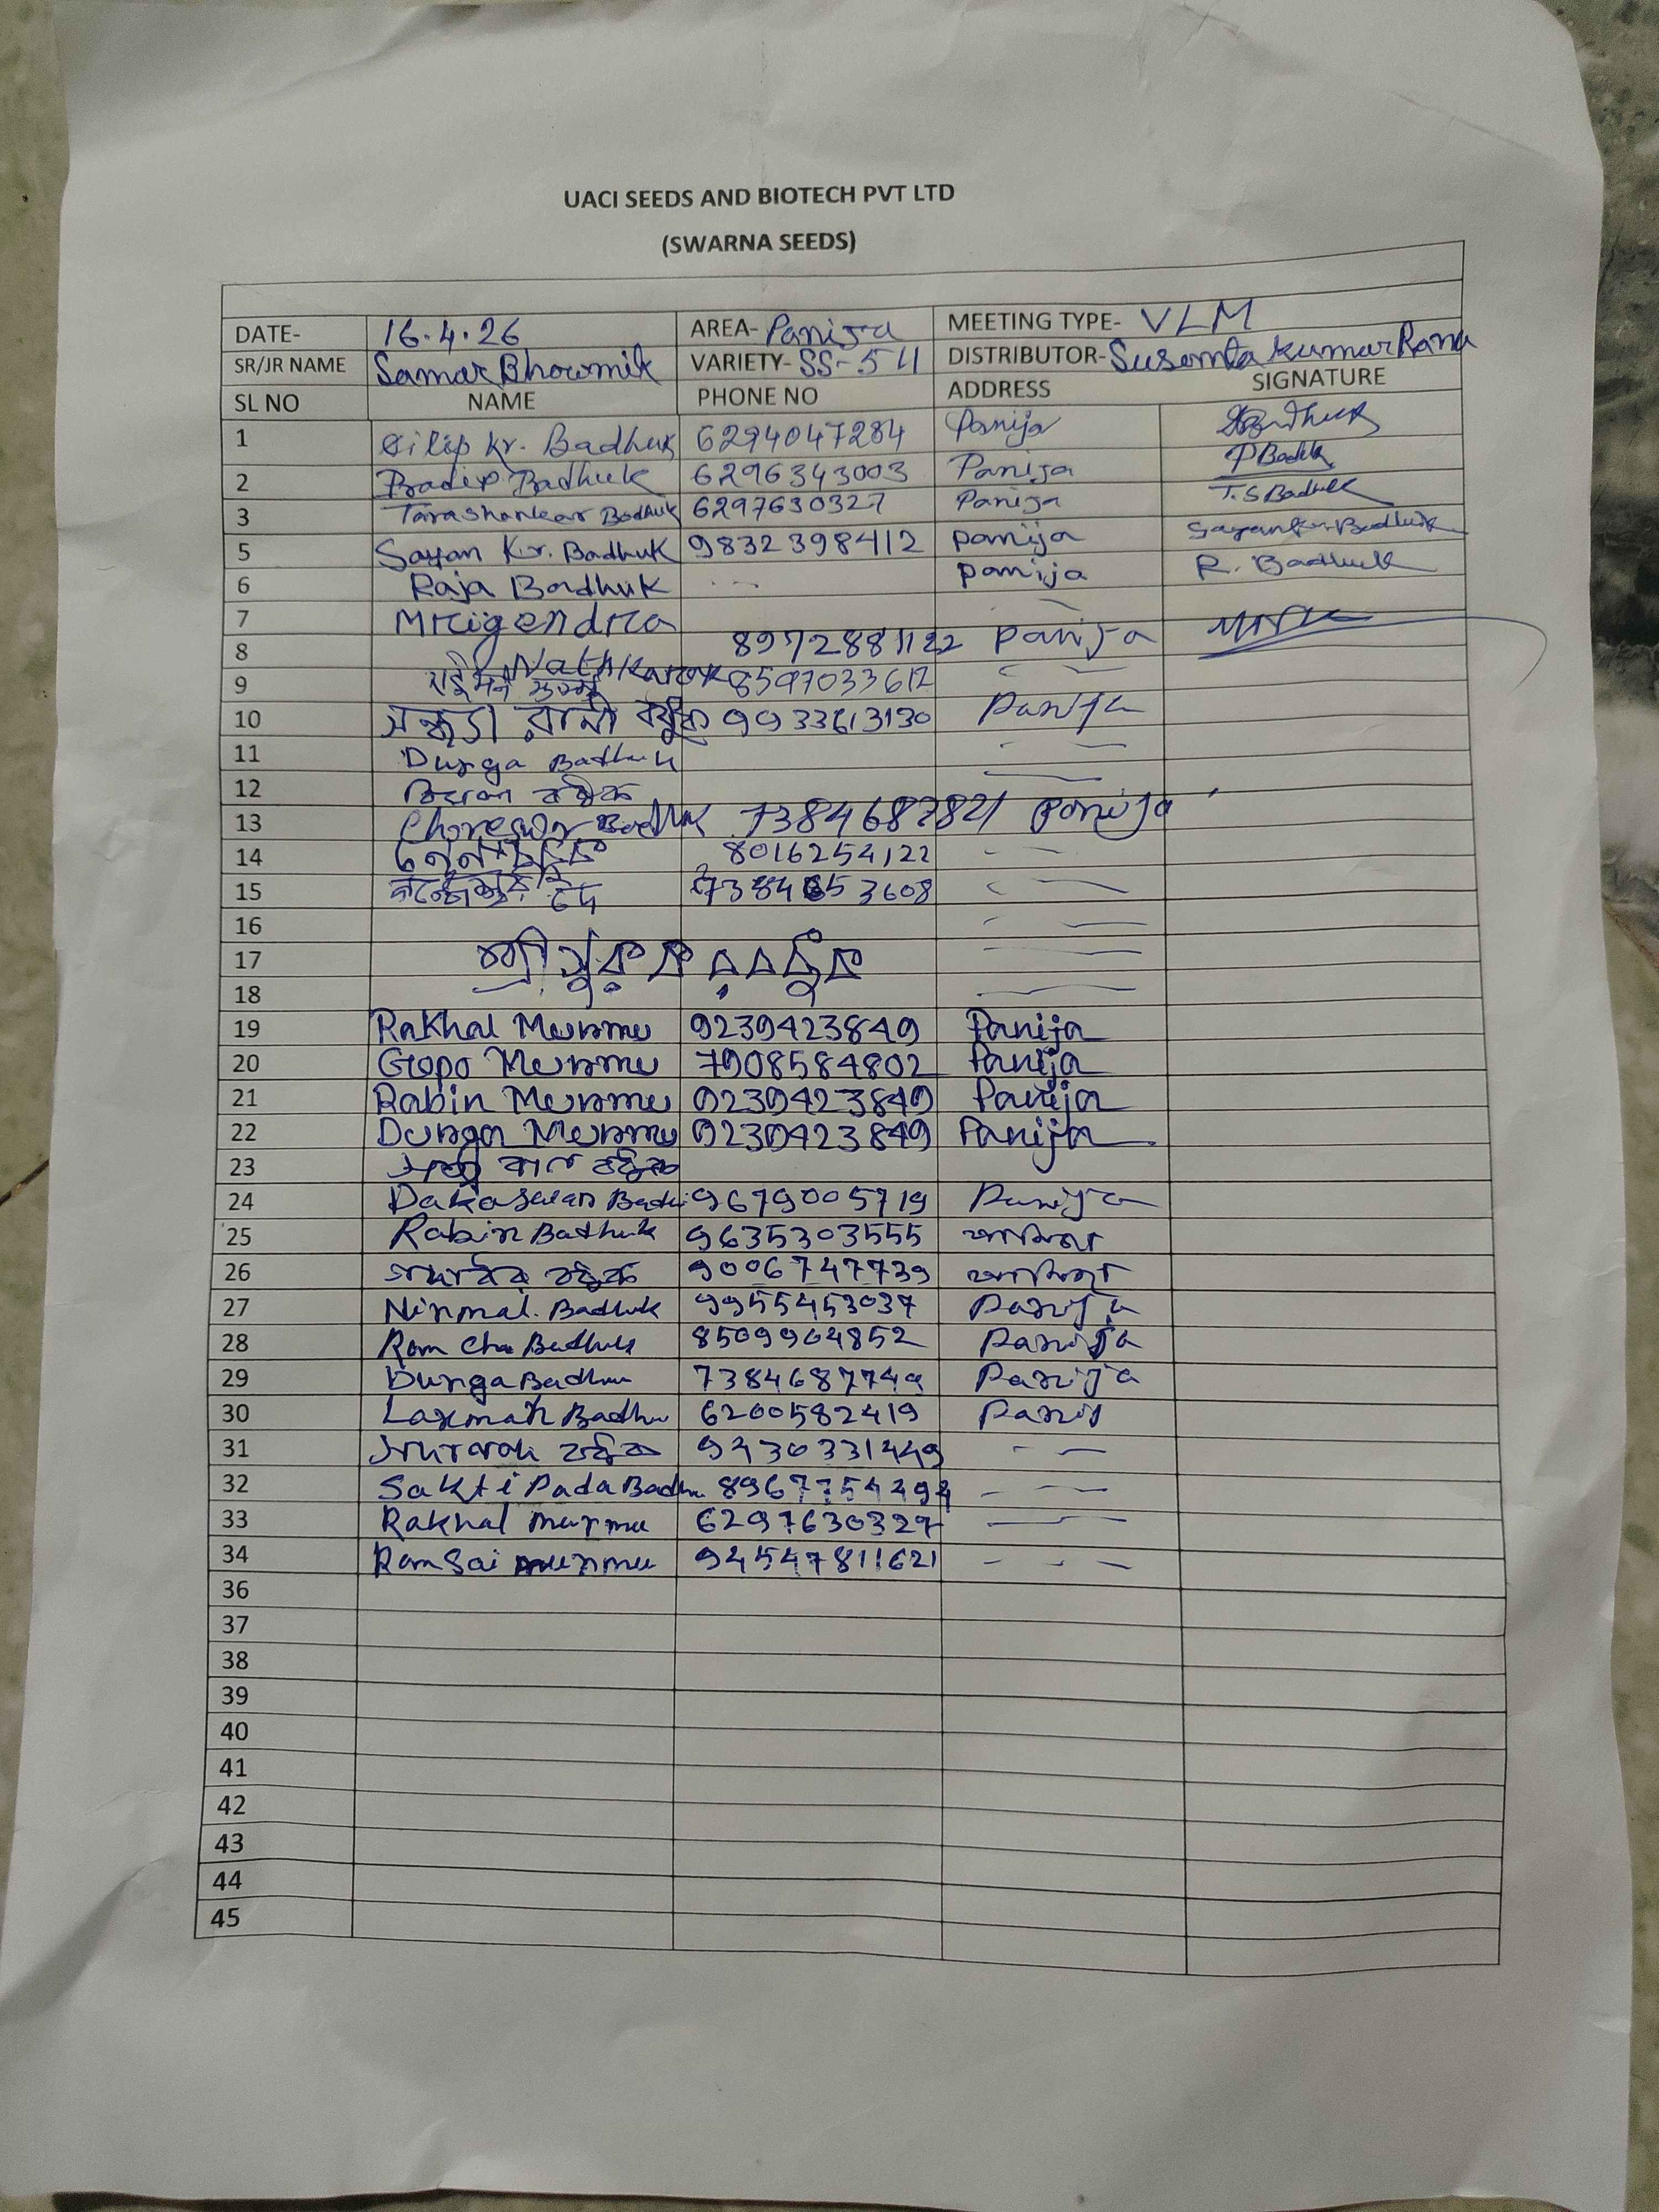 UACI SEEDS AND BIOTECH PVT LTD
(SWARNA SEEDS)
DATE- 16.4.26 AREA- Panija MEETING TYPE- VLM
SR/JR NAME Samar Bhowmik VARIETY- SS-511 DISTRIBUTOR- Susamta Kumar Rana
SL NO NAME PHONE NO ADDRESS SIGNATURE
1 Dilip Kr. Badhuk 6294047284 Panija
2 Pradip Badhuk 6296343003 Panija P Badhk
3 Tarashankar Badhuk 6297630327 Panija T.S Badhuk
5 Sayan Kr. Badhuk 9832398412 panija Sayan Kr. Badhuk
6 Raja Badhuk panija R. Badhuk
7 Mrigendra
8 Nath 8972881122 panija
9 8597033612
10 সন্ধ্যা রানী 9933613130 Panija
11 Durga Badhuk
12 বধুক
13 Badhuk 7384687821 panija
14 8016254122
15 দে
16
17
18
19 Rakhal Murmu 9239423849 Panija
20 Gopo Murmu 7908584802 Panija
21 Rabin Murmu 9239423849 Panija
22 Durga Murmu 9239423849 Panija
23 বধুক
24 9679005719 Panija
25 Rabin Badhuk 9635303555
26 বধুক 9006747739
27 Nirmal. Badhuk 9955453037 Panija
28 Ram Cha Badhuk 8509904852 Panija
29 Durga Badhu 7384687749 Panija
30 Laxman Badhu 6200582419 Panij
31 বধুক 9430331449
32 Sakti Pada Badhu 8967754494
33 Rakhal murmu 6297630327
34 Ramsai murmu 94547811621
36
37
38
39
40
41
42
43
44
45